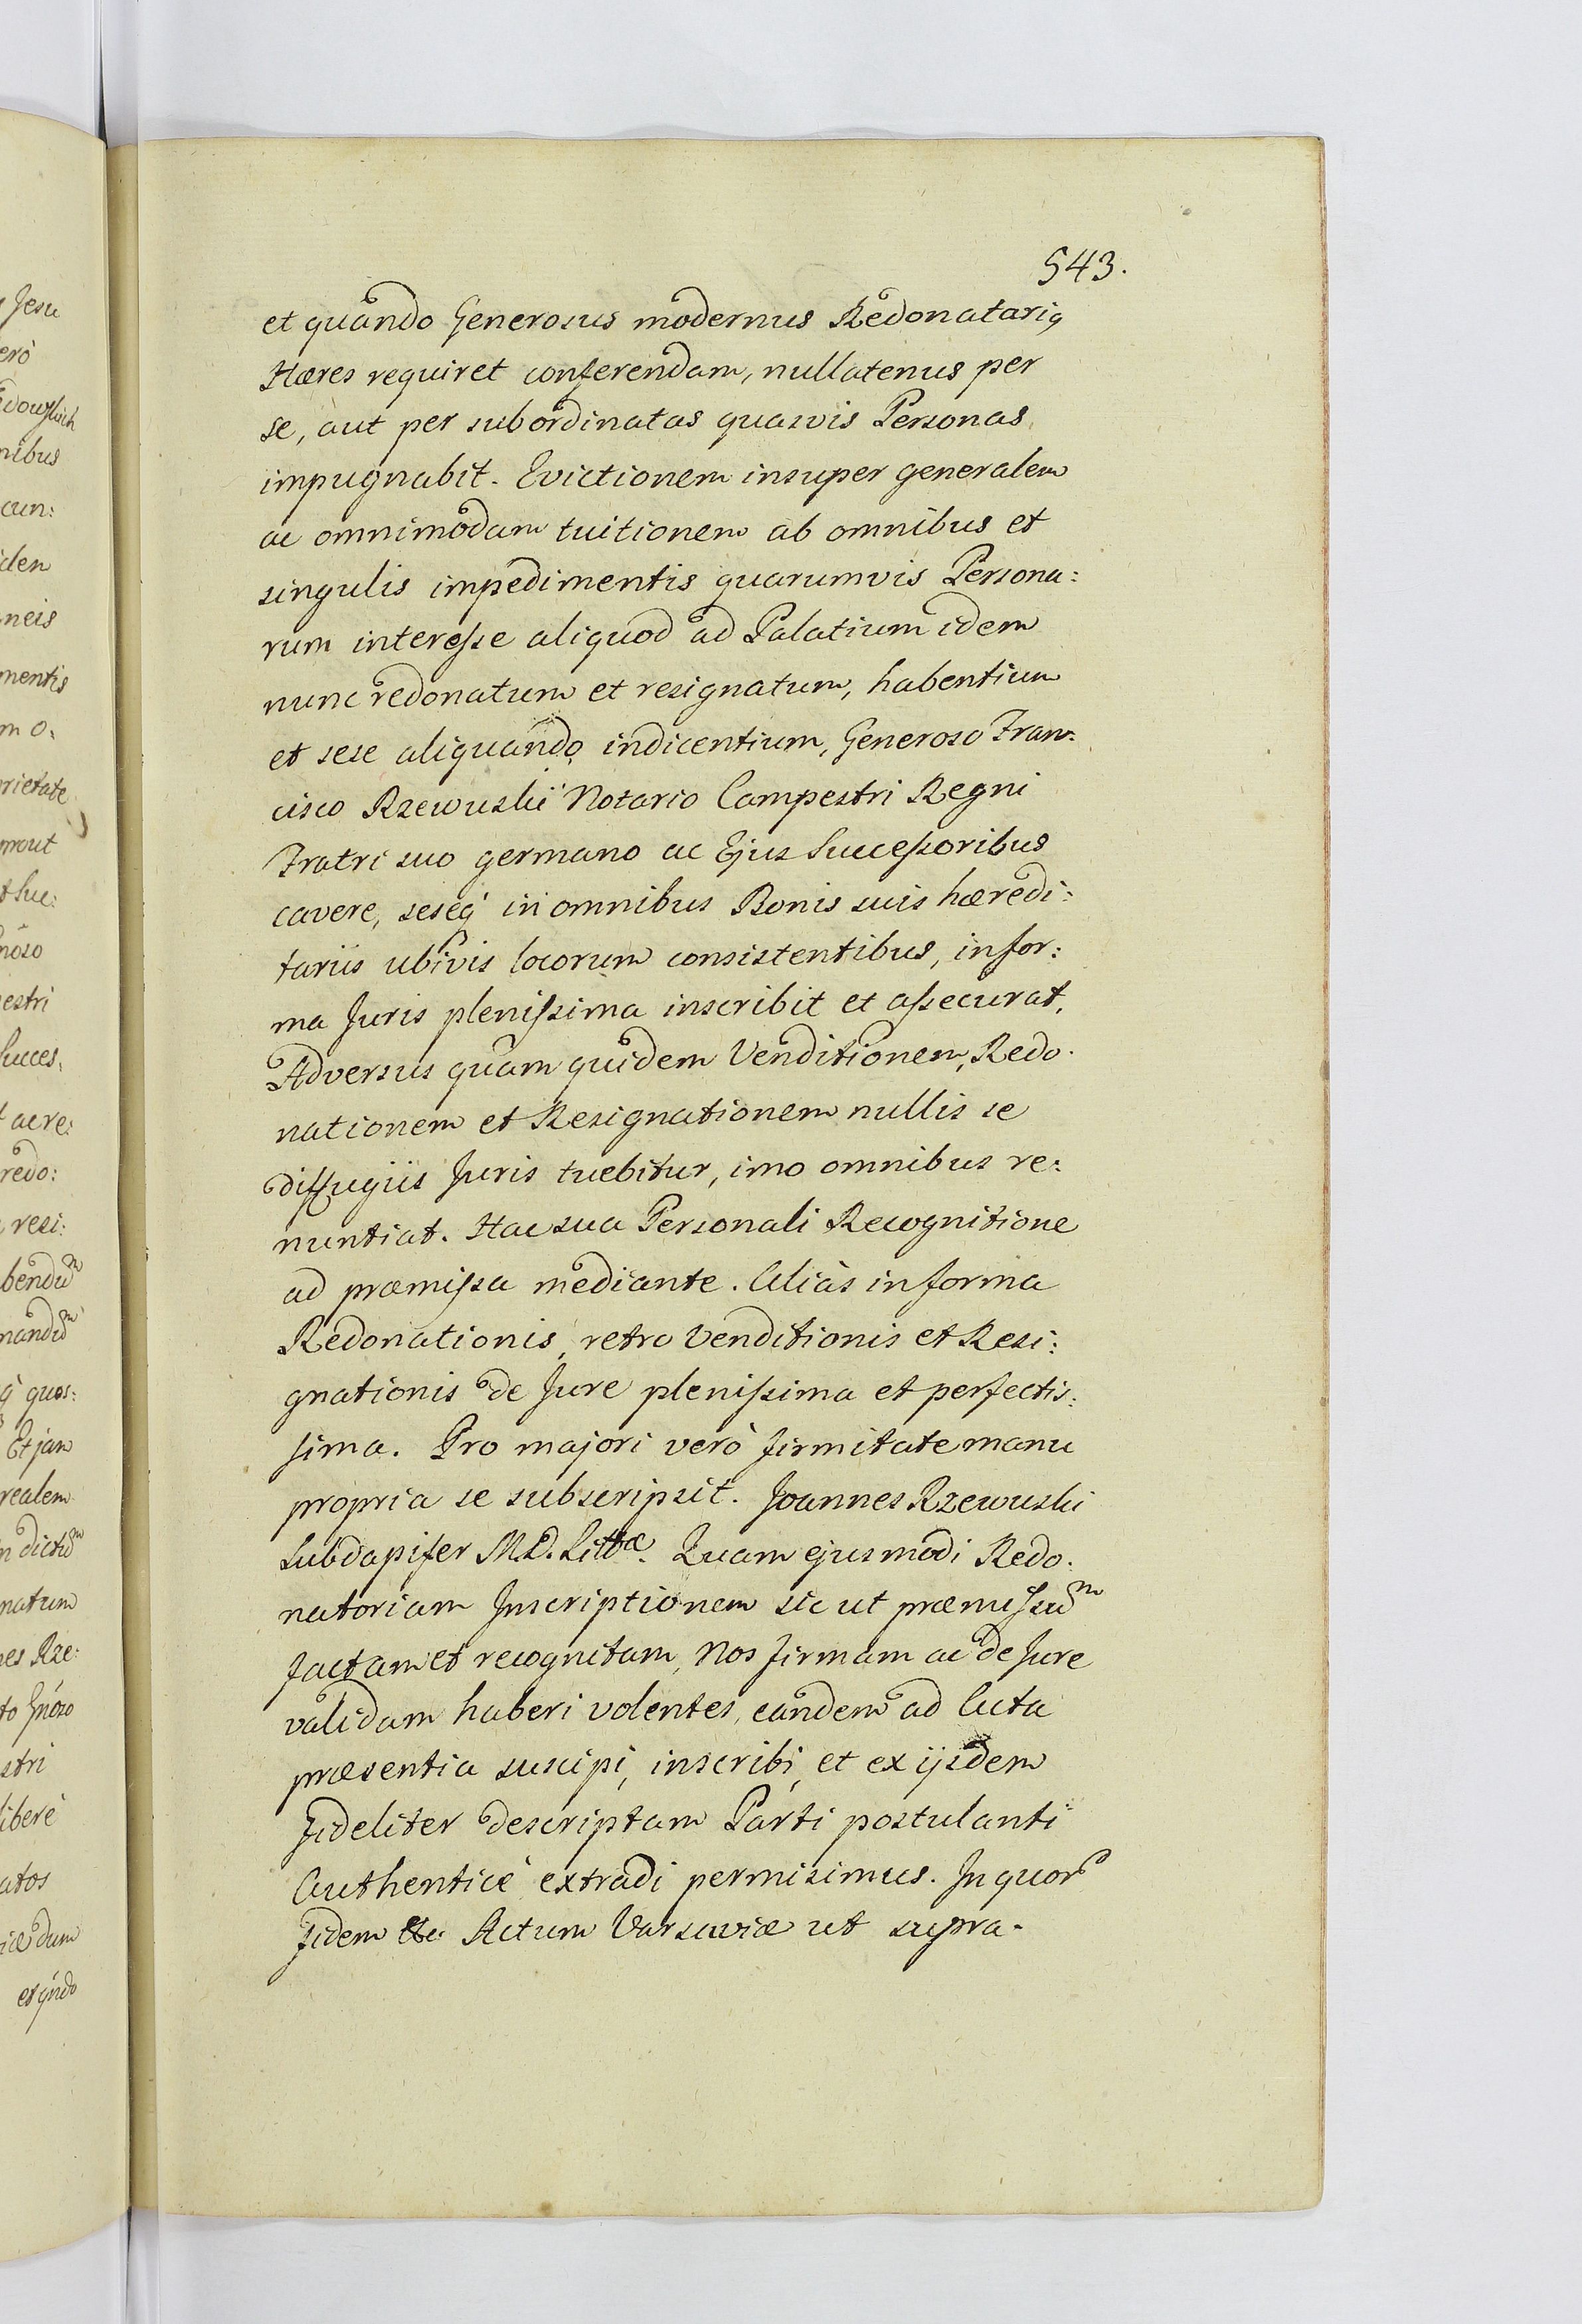 543.
et quando Generosus modernus Redonatariꝯ
Hæres requiret conferendam, nullatenus per
se, aut per subordinatas quasvis Personas
impugnabit. Evictionem insuper generalem
ac omnimodam tuitionem ab omnibus et
singulis impedimentis quarumvis Persona:
rum interesse aliquod ad Palatium idem
nunc redonatum et resignatum, habentium
et sese aliquando indicentium, Generoso Fran:
cisco Rzewuski Notario Campestri Regni
Fratri suo germano ac Ejus Successoribus
cavere, seseq́ in omnibus Bonis suis hæredi:
tariis ubivis locorum consistentibus, in for:
ma Juris plenissima inscribit et assecurat.
Adversus quam quidem Venditionem, Redo.
nationem et Resignationem nullis se
diffugiis Juris tuebitur, imo omnibus re:
nuntiat. Hac sua Personali Recognitione
ad præmissa mediante. Aliàs in forma
Redonationis, retro Venditionis et Resi:
gnationis de Jure plenissima et perfectis:
sima. Pro majori verò firmitate manu
propria se subscripsit. Joannes Rzewuski
Subdapifer M.D. Littæ. Quam ejusmodi Redo.
natoriam Inscriptionem sic ut præmissũm
factam et recognitam, Nos firmam ac de Jure
validam haberi volentes, eandem ad Acta
præsentia suscipi, inscribi, et ex ijsdem
fideliter descriptam Parti postulanti
Authenticè extradi permisimus. In quor̃
fidem etc Actum Varsaviæ ut supra.
Jesu
erò
nibus
cun:
iden
neis
mentis
m o:
prietate
prout
t Suc:
nóso
estri
Succes:
acre:
redo:
resi:
bendũm
nandũm
q́ quos:
Et jam
realem
dictũm
natum
nes Rze:
to Gnóso
stri
liberè
atos
dum
et qńdo